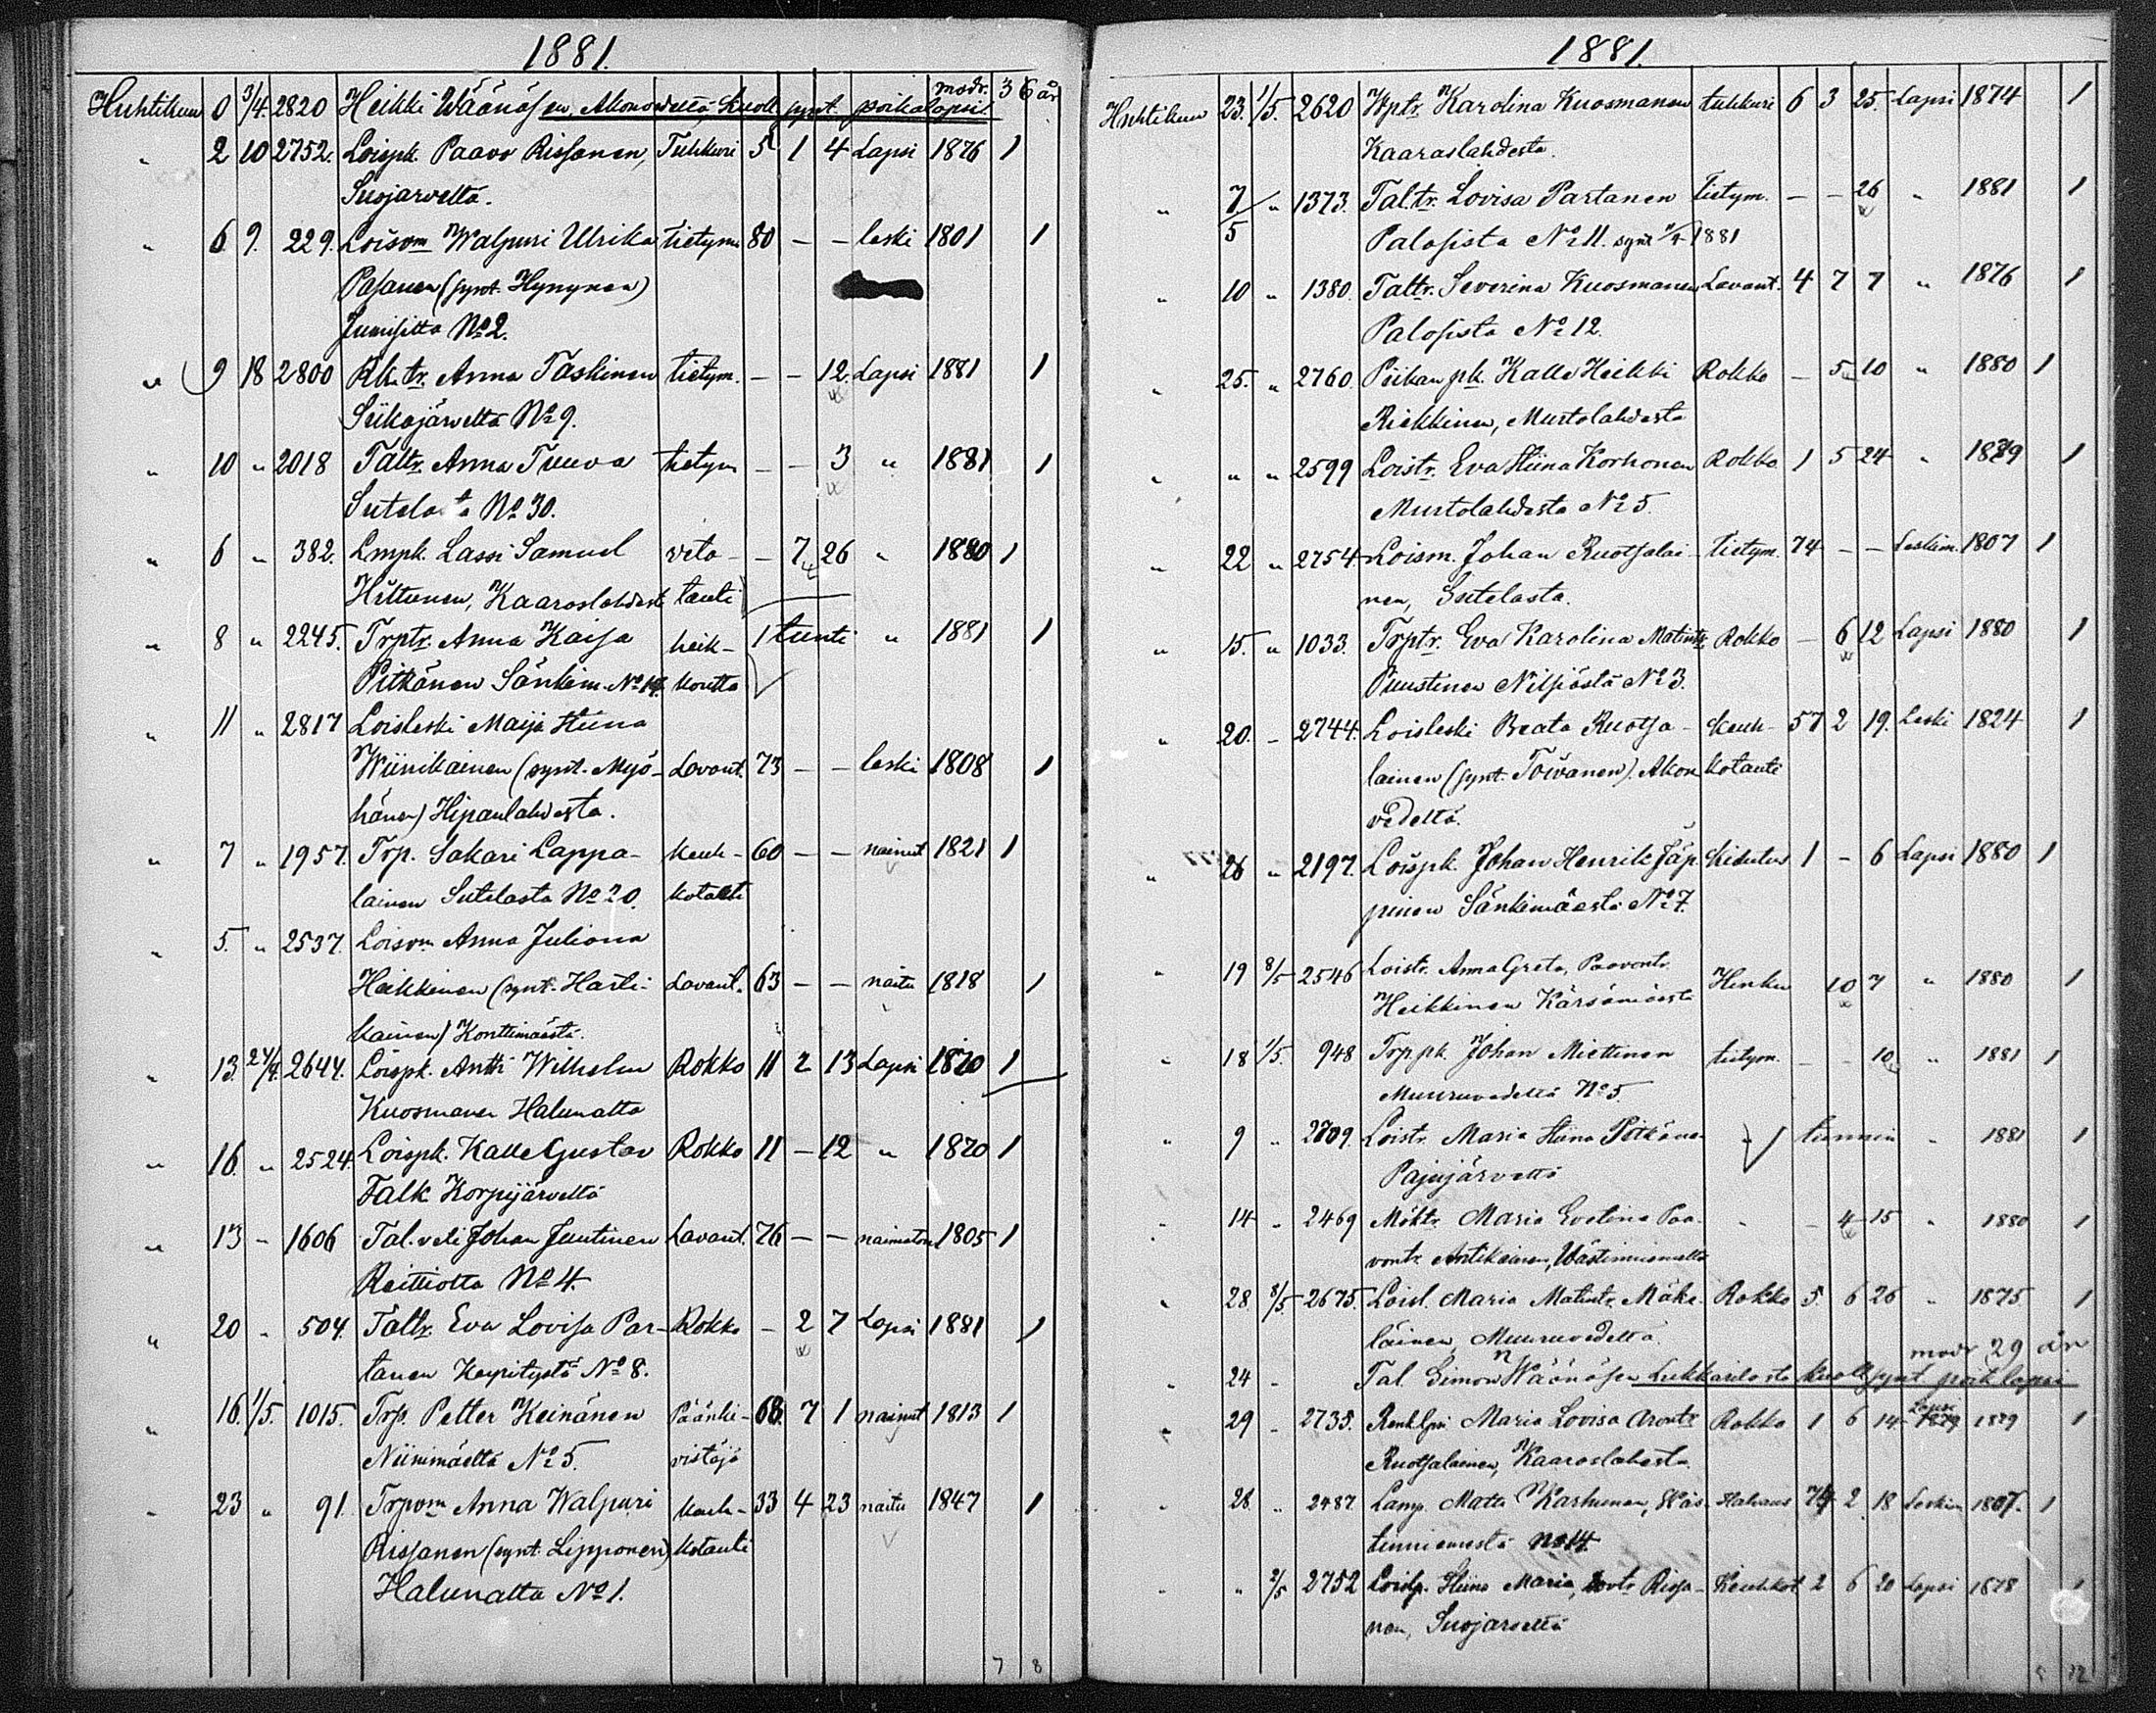 1881.
modr. 36 år
Huhtikuu 0 3/4. 2820 Heikki Wäänäsen, Akonvedeltä, kuoll. synt. poikalapsi.
" 2 10 2752. Loispk. Paavo Rissanen, Tuhkuri 5 1 4 Lapsi 1876 1
Suojarveltä.
" 6 9. 229. Loisvm Walpuri Ulrika tietym. 80 – – leski 1801 1
Pasanen (synt. Hynynen)
Jumisitta No 2.
" 9 18 2800 Rk.tr. Anna Taskinen tietym. – – 12. Lapsi 1881 1
Siikajärveltä No 9.
" 10 " 2018 Taltr. Anna Tuuva tietym – – 3 " 1881 1
Sutelasta No 30.
" 6 " 382. Lmpk. Lassi Samuel veto- – 7 26 " 1880 1
Hiltunen, Kaaroslahdesta tauti
" 8 " 2245. Trptr. Anna Kaisa heik- 1 tunti " 1881 1
Pitkänen Sänkim. No 14. koutta
" 11 " 2817 Loisleski Maija Stiina
Wiinikainen (synt. Myö- Lavant. 73 – – leski 1808 1
hänen) Hipanlahdesta.
" 7 " 1957. Trp. Sakari Lappa- keuh- 60 – – nainut 1821 1
lainen Sutelasta No 20. kotauti
" 5. " 2537. Loisvm Anna Juliana
Heikkinen (synt. Harti- Lavant. 63 – – naitu 1818 1
kainen) Konttimäestä.
" 13. 24/4. 2644. Loispk. Antti Wilhelm Rokko 11 2 13 Lapsi 1870 1
Kuosmanen Halunalta
" 16. " 2524. Loispk. Kalle Gustav Rokko 11 – 12 " 1870 1
Falk Korpijärveltä
" 13 – 1606 Tal. veli Johan Juutinen Lavant. 76 – – naimaton 1805 1
Reittiolta No 4.
" 20 " 504. Taltr. Eva Lovisa Par- Rokko – 2 7 Lapsi 1881 1
tanen No 8.
" 16. 1/5. 1015. Trp. Petter Keinänen Päänki- 68. 7 1 nainut 1813 1
Niinimäeltä No 5. vistäjä
" 23 " 91. Trpvm Anna Walpuri keuh- 33 4 23 naitu 1847 1
Rissanen (synt. Lipponen) kotauti
Halunalta No 1.
7 8
1881.
Huhtikuu 23. 1/5. 2620 Karolina Kuosmanen tuhkuri 6 3 25. Lapsi 1874 1
Kaaraslahdesta.
" 7/5 " 1373. Tal.tr. Lovisa Partanen tietym. – – 26 " 1881 1
Palosista No 11. synt 1881
" 10 " 1380. Taltr. Severina Kuosmanen Lavant. 4 7 7 " 1876 1
Palosista No 12.
" 25. " 2760. Piikan pk. Kalle Heikki Rokko – 5 10 " 1880 1
Riekkinen, Murtolahdesta
" " " 2599 Loistr. Eva Stiina Korhonen Rokko 1 5 24 " 1879 1
Murtolahdesta No 5.
" 22 " 2754. Loism. Johan Ruotsalai- tietym. 74 – – Leskim. 1807 1
nen, Sutelasta.
" 15. " 1033. Trptr. Eva Karolina Matintr. Rokko – 6 12 Lapsi 1880 1
Puustinen Nilsiästä No 3.
" 20. – 2744. Loisleski Beata Ruotsa- keuh- 57 2 19. Leski 1824 1
lainen (synt. Toivanen). Akon kotauti
vedeltä.
" 26 " 2197. Loispk. Johan Henrik Jäp- kidutus 1 – 6 Lapsi 1880 1
pinen Sänkimäestä No 7.
" 19 8/5 2546 Loistr. Anna Greta, Paavontr. Hinku 10 7 " 1880 1
Heikkinen Kärsämäestä
" 18 1/5. 948 Trppk. Johan Miettinen tietym. – – 10 " 1881 1
Muuruvedeltä No 5.
" 9 " 2709. Loistr. Maria Stiina Pitkänen " 1 tunnin " 1881 1
Pajujärveltä
" 14 " 2469 Mäktr. Maria Evelina Paa- " – 4 15 " 1880 1
vontr. Antikainen, Wästinniemeltä
" 28 8/5 2675. Loisl. Maria Matintr. Mäke- Rokko 5. 6 26 " 1875 1
läinen, Muuruvedeltä.
modr 29 år
24 – Tal. Simon Wäänäsen Lukkarilasta kuoll. synt. poik. lapsi
" 29 – 2735. Maria Lovisa Arontr. Rokko 1 6 14 Lapsi 1879 1879 1
Ruotsalainen, Kaaroslahesta.
" 28. " 2487 Lamp. Matti Karhunen, Wäs- Halvaus 74 2 18 Leskim 1807. 1
tinniemestä No 14.
" " 2/5 2752 Stiina Maria, Rissa- Keuhkot 2 6 20 Lapsi 1878 1
nen, Suojarveltä
5 12